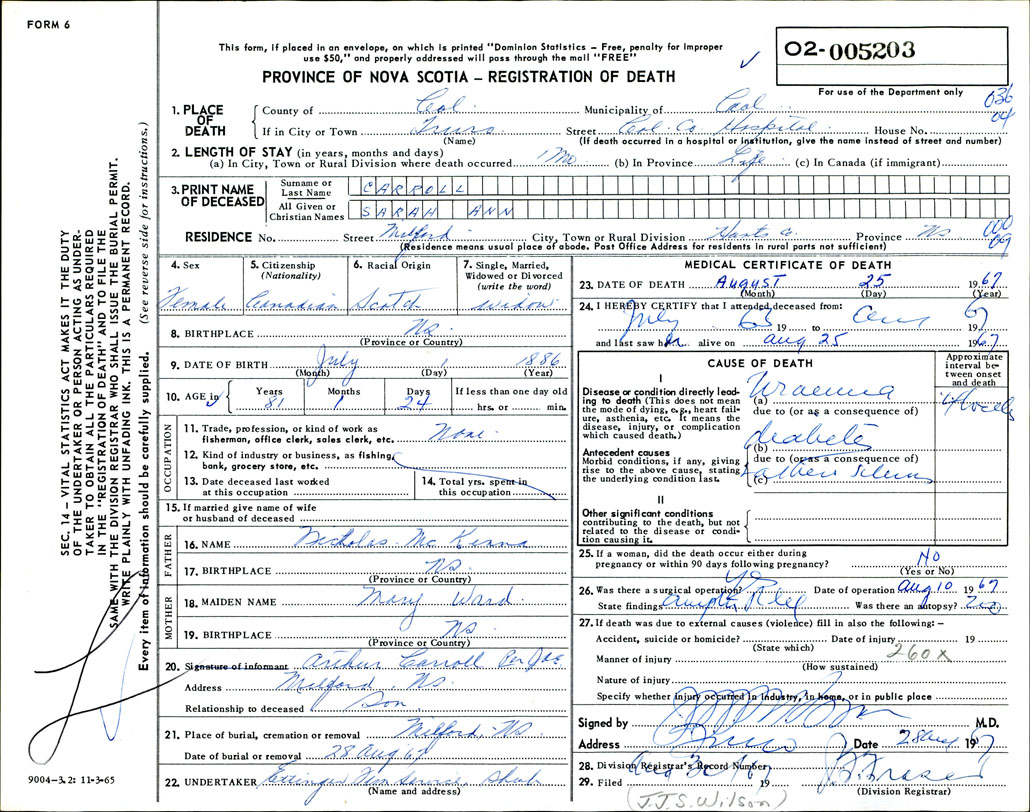 FORM 6
This form, if placed in an envelope, on which is printed "Dominion Statistics – Free, penalty for improper
use $50," and properly addressed will pass through the mail "FREE"
PROVINCE OF NOVA SCOTIA – REGISTRATION OF DEATH
O2-005203
For use of the Department only
036
04
1. PLACE OF DEATH
County of Col. Municipality of Col
If in City or Town Truro Street Col. Co. Hospital House No.
(Name) (If death occurred in a hospital or institution, give the name instead of street and number)
2. LENGTH OF STAY (in years, months and days)
(a) In City, Town or Rural Division where death occurred 1 Mo (b) In Province Life (c) In Canada (if immigrant)
3. PRINT NAME OF DECEASED
Surname or Last Name CARROLL
All Given or Christian Names SARAH ANN
RESIDENCE No. Street Milford City, Town or Rural Division Hants Co. Province NS
000
09
(Residence means usual place of abode. Post Office Address for residents in rural parts not sufficient)
4. Sex Female
5. Citizenship (Nationality) Canadian
6. Racial Origin Scotch
7. Single, Married, Widowed or Divorced (write the word) widow
8. BIRTHPLACE NS
(Province or Country)
9. DATE OF BIRTH July 1 1886
(Month) (Day) (Year)
10. AGE in Years 81 Months 1 Days 24 If less than one day old hrs. or min.
OCCUPATION
11. Trade, profession, or kind of work as fisherman, office clerk, sales clerk, etc. None
12. Kind of industry or business, as fishing, bank, grocery store, etc.
13. Date deceased last worked at this occupation
14. Total yrs. spent in this occupation
15. If married give name of wife or husband of deceased
FATHER
16. NAME Nicholas McKenna
17. BIRTHPLACE NS
(Province or Country)
MOTHER
18. MAIDEN NAME Mary Ward
19. BIRTHPLACE NS
(Province or Country)
20. Signature of informant Arthur Carroll Per
Address Milford, NS
Relationship to deceased Son
21. Place of burial, cremation or removal Milford, NS
Date of burial or removal 28 Aug 67
22. UNDERTAKER Ettinger
(Name and address)
MEDICAL CERTIFICATE OF DEATH
23. DATE OF DEATH AUGUST 25 1967
(Month) (Day) (Year)
24. I HEREBY CERTIFY that I attended deceased from:
July 63 19 to Aug 1967
and last saw her alive on Aug 25 1967
CAUSE OF DEATH
Approximate interval between onset and death
I
Disease or condition directly leading to death (This does not mean the mode of dying, e.g., heart failure, asthenia, etc. It means the disease, injury, or complication which caused death.)
(a) Uraemia
due to (or as a consequence of)
(b) diabetes
Antecedent causes
Morbid conditions, if any, giving rise to the above cause, stating the underlying condition last.
due to (or as a consequence of)
(c)
II
Other significant conditions
contributing to the death, but not related to the disease or condition causing it.
25. If a woman, did the death occur either during pregnancy or within 90 days following pregnancy? NO
(Yes or No)
26. Was there a surgical operation? yes Date of operation Aug 10 1967
State findings Was there an autopsy? no
27. If death was due to external causes (violence) fill in also the following: –
Accident, suicide or homicide? Date of injury 19
(State which)
260X
Manner of injury
(How sustained)
Nature of injury
Specify whether injury occurred in industry, in home, or in public place
Signed by M.D.
Address Truro Date 28 Aug 1967
28. Division Registrar's Record Number
29. Filed Aug 30/67 19 Fraser
(Division Registrar)
(J.J.S. Wilson)
9004–3.2: 11-3-65
SEC. 14 – VITAL STATISTICS ACT MAKES IT THE DUTY
OF THE UNDERTAKER OR PERSON ACTING AS UNDER-
TAKER TO OBTAIN ALL THE PARTICULARS REQUIRED
IN THE "REGISTRATION OF DEATH" AND TO FILE THE
SAME WITH THE DIVISION REGISTRAR WHO SHALL ISSUE THE BURIAL PERMIT.
WRITE PLAINLY WITH UNFADING INK. THIS IS A PERMANENT RECORD.
Every item of information should be carefully supplied. (See reverse side for instructions.)